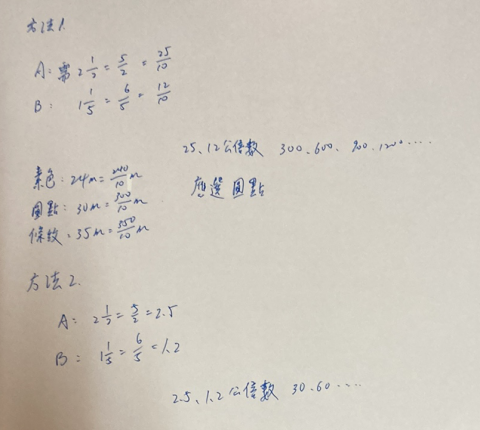 方法1.
A: 需 2 1/2 = 5/2 = 25/10
B: 1 1/5 = 6/5 = 12/10
25、12 公倍數 300、600、900、1200……
素色: 24m = 240/10 m
圓點: 30m = 300/10 m
條紋: 35m = 350/10 m
應選圓點
方法2.
A: 2 1/2 = 5/2 = 2.5
B: 1 1/5 = 6/5 = 1.2
2.5、1.2 公倍數 30、60……